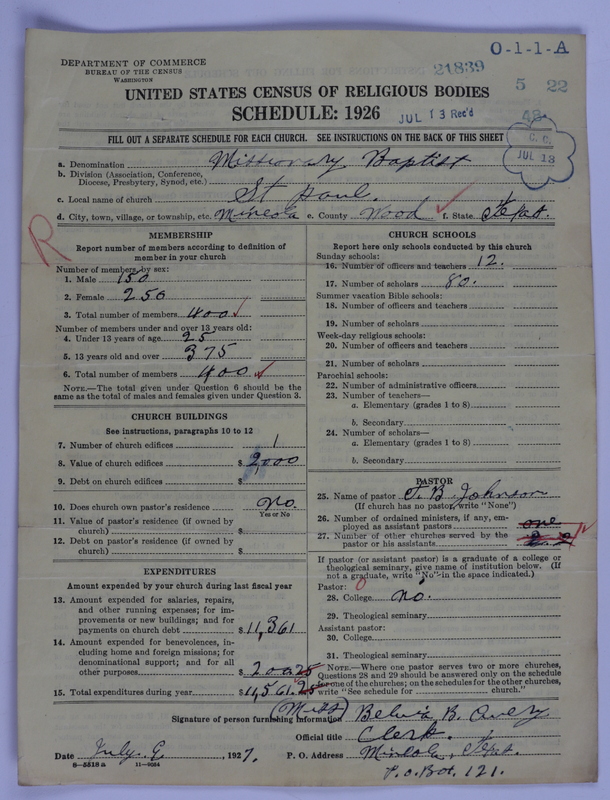 O-1-1-A
DEPARTMENT OF COMMERCE
BUREAU OF THE CENSUS
WASHINGTON
21839
5 22
UNITED STATES CENSUS OF RELIGIOUS BODIES
SCHEDULE: 1926
JUL 13 Rec'd
48
C. C.
JUL 13
FILL OUT A SEPARATE SCHEDULE FOR EACH CHURCH. SEE INSTRUCTIONS ON THE BACK OF THIS SHEET
a. Denomination Missionary Baptist
b. Division (Association, Conference, Diocese, Presbytery, Synod, etc.)
c. Local name of church St Paul.
d. City, town, village, or township, etc. Mineola e. County Wood f. State
R
MEMBERSHIP
Report number of members according to definition of
member in your church
Number of members by sex:
1. Male 150
2. Female 250
3. Total number of members 400
Number of members under and over 13 years old:
4. Under 13 years of age 25
5. 13 years old and over 375
6. Total number of members 400
NOTE.—The total given under Question 6 should be
same as the total of males and females given under Question 3.
CHURCH BUILDINGS
See instructions, paragraphs 10 to 12
7. Number of church edifices 1
8. Value of church edifices $2,000
9. Debt on church edifices $
10. Does church own pastor's residence no.
Yes or No
11. Value of pastor's residence (if owned by
church) $
12. Debt on pastor's residence (if owned by
church) $
EXPENDITURES
Amount expended by your church during last fiscal year
13. Amount expended for salaries, repairs,
and other running expenses; for im-
provements or new buildings; and for
payments on church debt $11,361
14. Amount expended for benevolences, in-
cluding home and foreign missions; for
denominational support; and for all
other purposes $200.25
15. Total expenditures during year $11,561.25
CHURCH SCHOOLS
Report here only schools conducted by this church
Sunday schools:
16. Number of officers and teachers 12.
17. Number of scholars 80.
Summer vacation Bible schools:
18. Number of officers and teachers
19. Number of scholars
Week-day religious schools:
20. Number of officers and teachers
21. Number of scholars
Parochial schools:
22. Number of administrative officers
23. Number of teachers—
a. Elementary (grades 1 to 8)
b. Secondary
24. Number of scholars—
a. Elementary (grades 1 to 8)
b. Secondary
PASTOR
25. Name of pastor B. Johnson
(If church has no pastor, write "None")
26. Number of ordained ministers, if any, em-
ployed as assistant pastors one
27. Number of other churches served by the
pastor or his assistants
If pastor (or assistant pastor) is a graduate of a college or
theological seminary, give name of institution below. (If
not a graduate, write "No" in the space indicated.)
Pastor: 0
28. College no.
29. Theological seminary
Assistant pastor:
30. College
31. Theological seminary
NOTE.—Where one pastor serves two or more churches,
Questions 28 and 29 should be answered only on the schedule
for one of the churches; on the schedules for the other churches,
write "See schedule for church."
(Miss)
Signature of person furnishing information B.
Official title Clerk.
Date July 9, 1927. P. O. Address Mineola,
6—5518a 11—9054
P.O. Box 121.